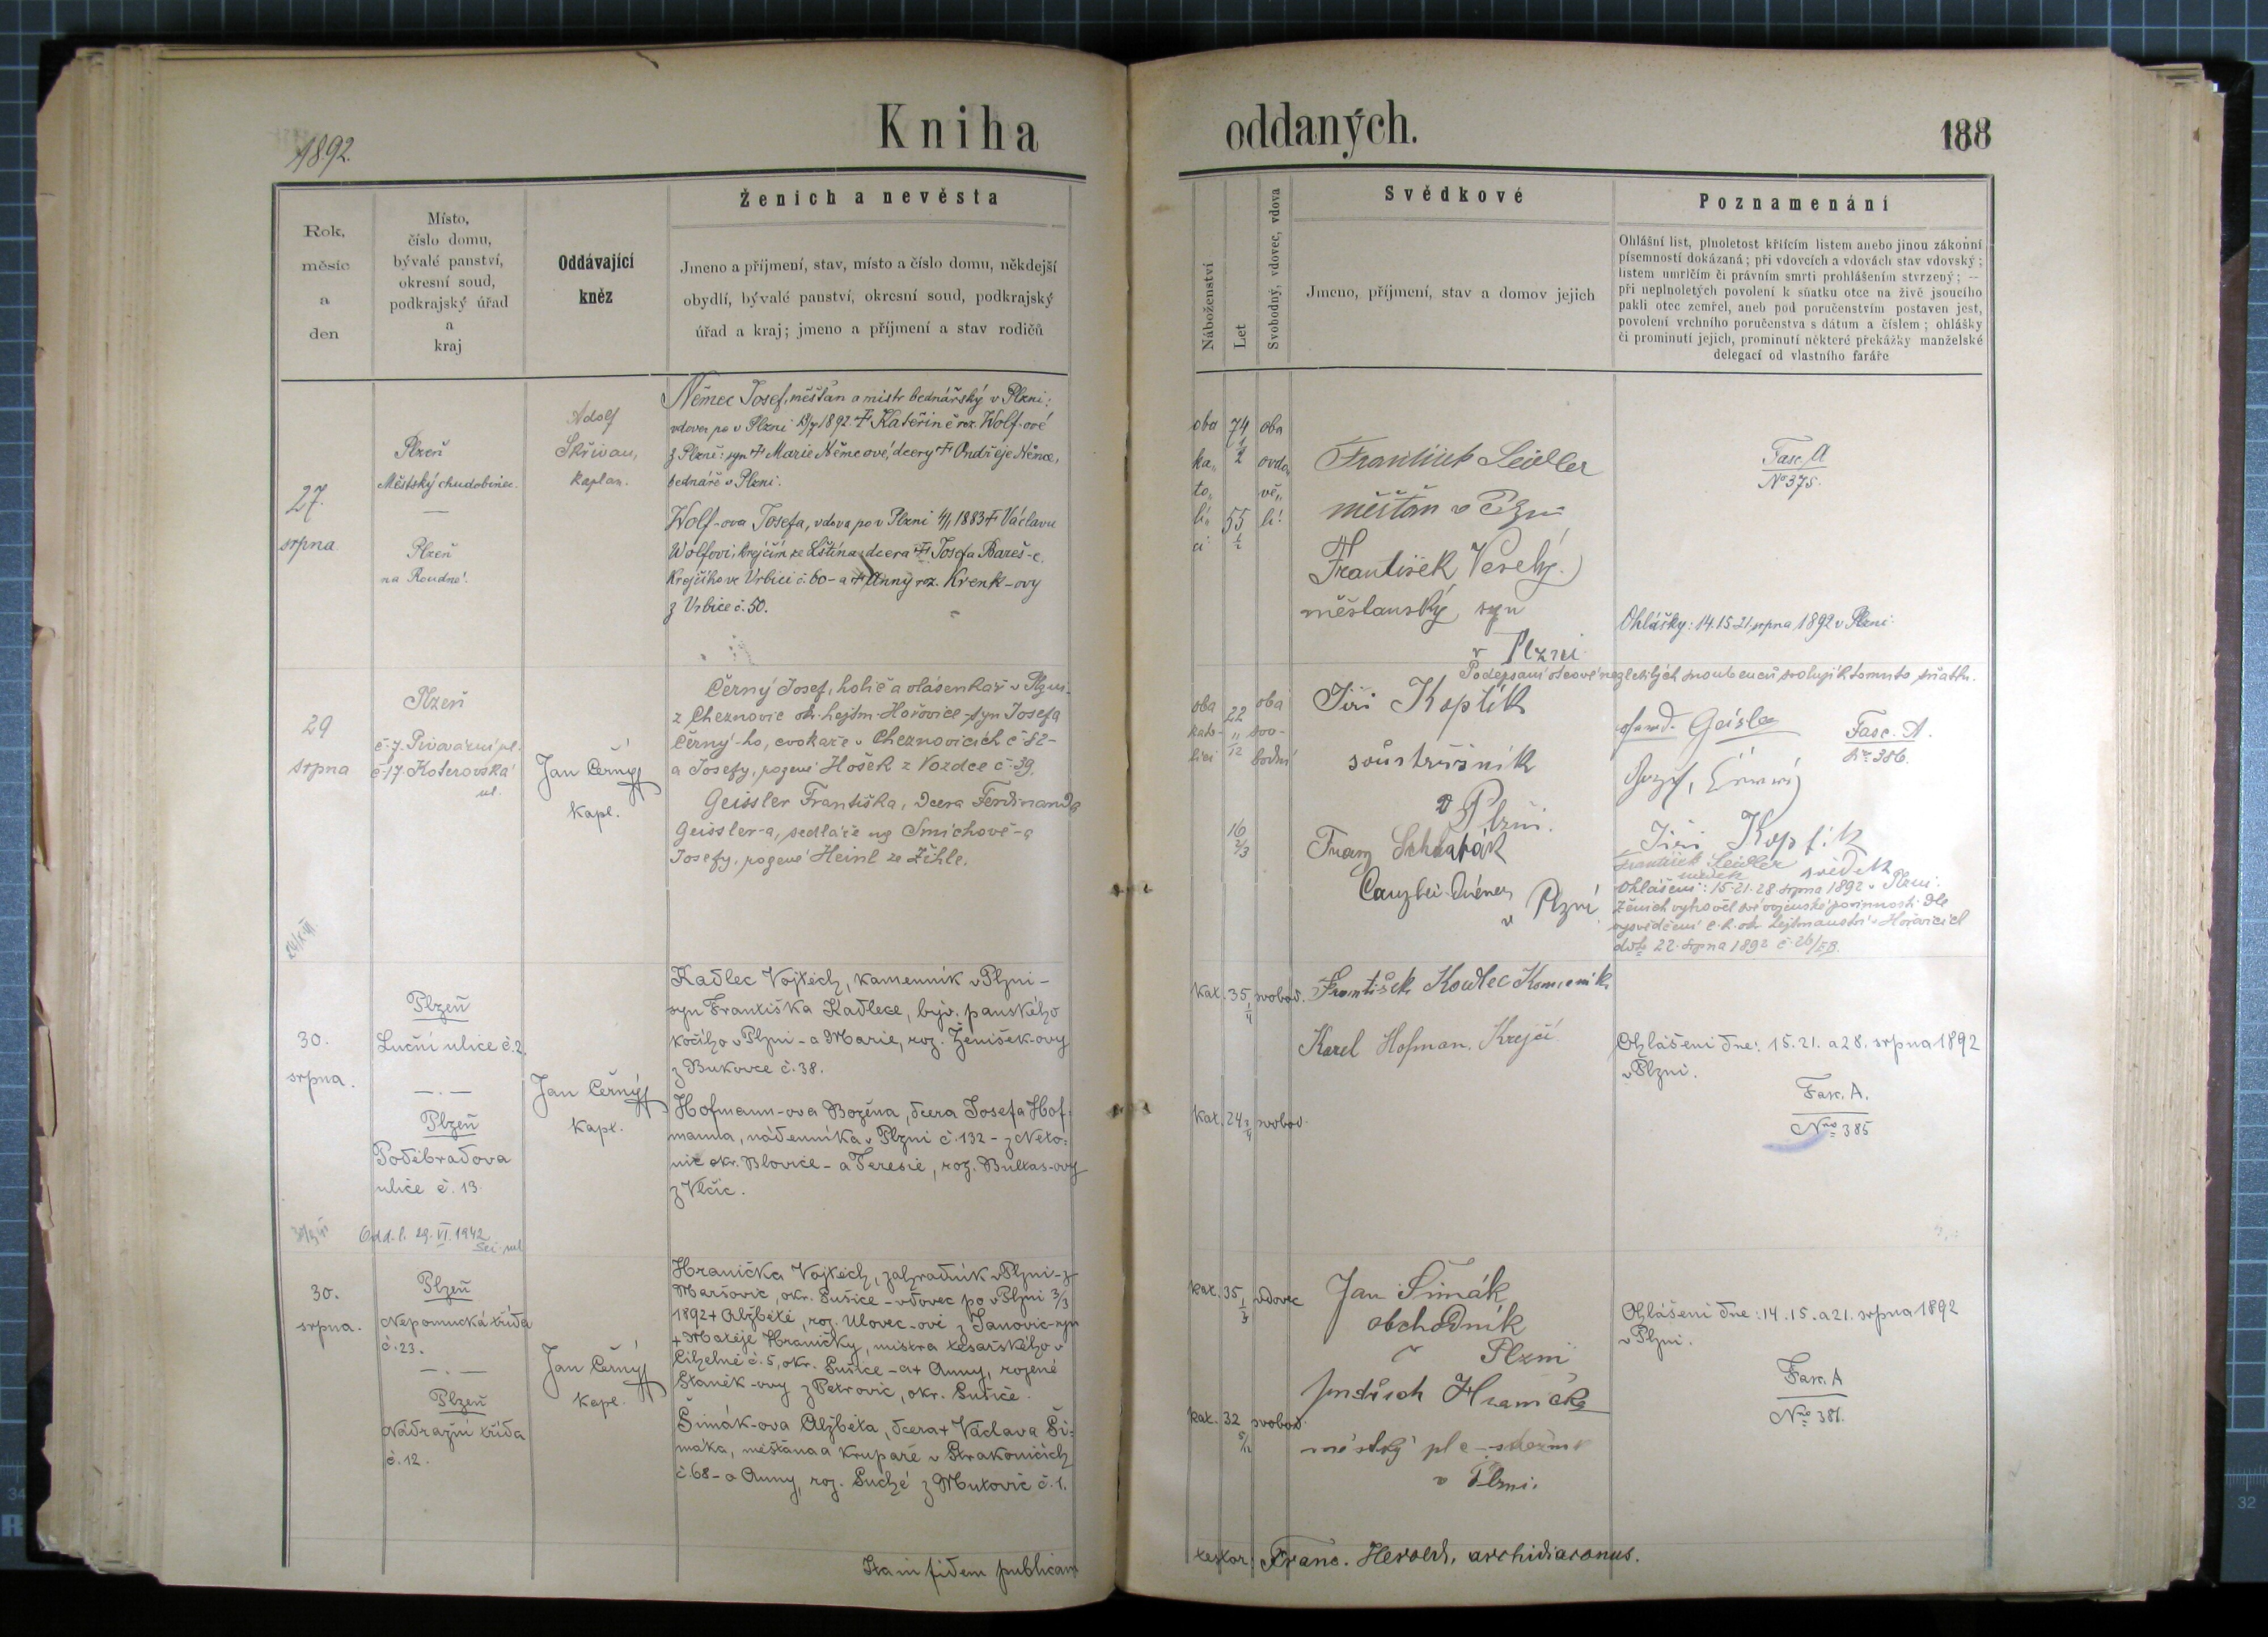 1892.
Kniha oddaných.
188
Rok, měsíc a den
Místo, číslo domu, bývalé panství, okresní soud, podkrajský úřad a kraj
Oddávající kněz
Ženich a nevěsta
Jmeno a příjmení, stav, místo a číslo domu, někdejší
obydlí, bývalé panství, okresní soud, podkrajský
úřad a kraj; jmeno a příjmení a stav rodičů
Náboženství
Let
Svobodný, vdovec, vdova
Svědkové
Jmeno, příjmení, stav a domov jejich
Poznamenání
Ohlášní list, plnoletost křticím listem anebo jinou zákonní
písemností dokázaná; při vdovcích a vdovách stav vdovský;
listem umrlčím či právním smrti prohlášením stvrzený; —
při neplnoletých povolení k sňatku otce na živě jsoucího
pakli otec zemřel, aneb pod poručenstvím postaven jest,
povolení vrchního poručenstva s dátum a číslem; ohlášky
či prominutí jejich, prominutí některé překážky manželské
delegací od vlastního faráře
27.
srpna
Plzeň
Městský chudobinec.
—
Plzeň
na Roudné.
Adolf
Skřivan,
kaplan.
Němec Josef, měšťan a mistr bednářský v Plzni:
vdovec po v Plzni 13/7 1892 + Kateřině roz. Wolf-ové
z Plzně: syn + Marie Němcové, dcery + Ondřeje Němce,
bednáře v Plzni.
Wolf-ova Josefa, vdova po v Plzni 4/1 1883 + Václavu
Wolfovi, krejčím ze Lštína, dcera + Josefa Bareš-e
krejčího ve Vrbici č. 60 - a + Anny roz. Krenk-ovy
z Vrbice č. 50.
oba
ka„
to„
lí„
ci
74
1/2
55
1/2
oba
ovdo„
vě„
lí
František Seidler
měšťan v Plzni
František Veselý
měšťanský syn
v Plzni
Fasc. A
No 375.
Ohlášky: 14. 15. 21. srpna 1892 v Plzni.
29
srpna
Plzeň
č. 7. Pivovární ul.
č. 17. Koterovská
ul.
Jan Černý
kapl.
Černý Josef, holič a vlásenkář v Plzni-
z Cheznovic okr. hejtm. Hořovice - syn Josefa
Černý-ho, cvokaře v Cheznovicích č 82 -
a Josefy, rozené Hošek z Vozdce č. 39.
Geissler Františka, dcera Ferdinanda
Geissler-a, sedláře na Smíchově - a
Josefy, rozené Heinl ze Žihle.
oba
kato-
líci
22
11/12
16
2/3
oba
svo-
bodní
Jiří Koptík
soustružník
v Plzni.
Franz Schlapák
Canzlei Diener
v Plzni
Podepsaní otcové nezletilých snoubenců svolují k tomuto sňatku.
Geisler
Fasc. A.
No 386.
Jiří Koptík
František Seidler svědek
svědek
Ohlášeni: 15. 21. 28. srpna 1892 v Plzni.
Ženich vyhověl své vojenské povinnosti dle
vysvědčení c. k. okr. hejtmanství v Hořovicích
ddto 22. srpna 1892 č. 26/EB.
30.
srpna.
Plzeň
Luční ulice č. 2.
—.—
Plzeň
Poděbradova
ulice č. 13.
Odd. l. 29. VI. 1942
Jan Černý
kapl.
Kadlec Vojtěch, kamenník v Plzni -
syn Františka Kadlece, býv. panského
kočího v Plzni - a Marie, roz. Ženíšek-ovy
z Bukovce č. 38.
Hofmann-ova Božena, dcera Josefa Hof-
manna, nádenníka v Plzni č. 132 - z Neto=
nic okr. Blovice - a Teresie, roz. Bultas-ovy
z Vlčic.
kat.
35 1/4
svobod.
kat.
24 3/4
svobod.
František Kadlec Kamenik
Karel Hofman. Krejčí.
Ohlášeni dne: 15. 21. a 28. srpna 1892
v Plzni.
Fasc. A.
Nro 385
30.
srpna.
Plzeň
Nepomucká třída
č. 23.
—.—
Plzeň
Nádražní třída
č. 12.
Jan Černý
kapl.
Hranička Vojtěch, zahradník v Plzni - z
Maršovic, okr. Sušice - vdovec po v Plzni 3/3
1892 + Alžbětě, roz. Ulovec-ové z Janovic - syn
+ Matěje Hraničky, mistra tesařského v
Cihelné č. 5, okr. Sušice - a + Anny, rozené
Staněk-ovy z Petrovic, okr. Sušice.
Šimák-ova Alžběta, dcera + Václava Ši=
máka, měšťana a krupaře v Strakonicích
č. 68 - a Anny, roz. Suché z Mutovic č. 1.
kat.
35
vdovec
kat.
32 5/12
svobod.
Jan Šimák
obchodník
v Plzni
Jndřich Hranička
městský
v Plzni.
Ohlášeni dne: 14. 15. a 21. srpna 1892
v Plzni.
Fasc. A
Nro 381.
Ita in fidem publicam
testor: Franc. Herold, archidiaconus.